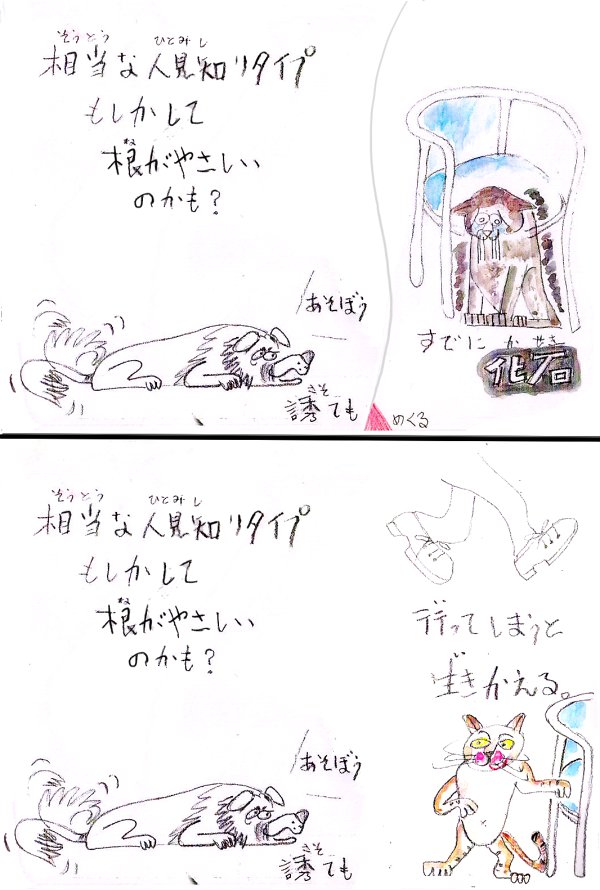 そうとう ひとみし
相当な人見知りタイプ
もしかして
ね
根がやさしい
のかも?
あそぼう
さそ
誘ても
すでに
か せき
化石
めくる
そうとう ひとみし
相当な人見知リタイプ
もしかして
ね
根がやさしい
のかも?
あそぼう
さそ
誘ても
行ってしまうと
い
生きかえる。